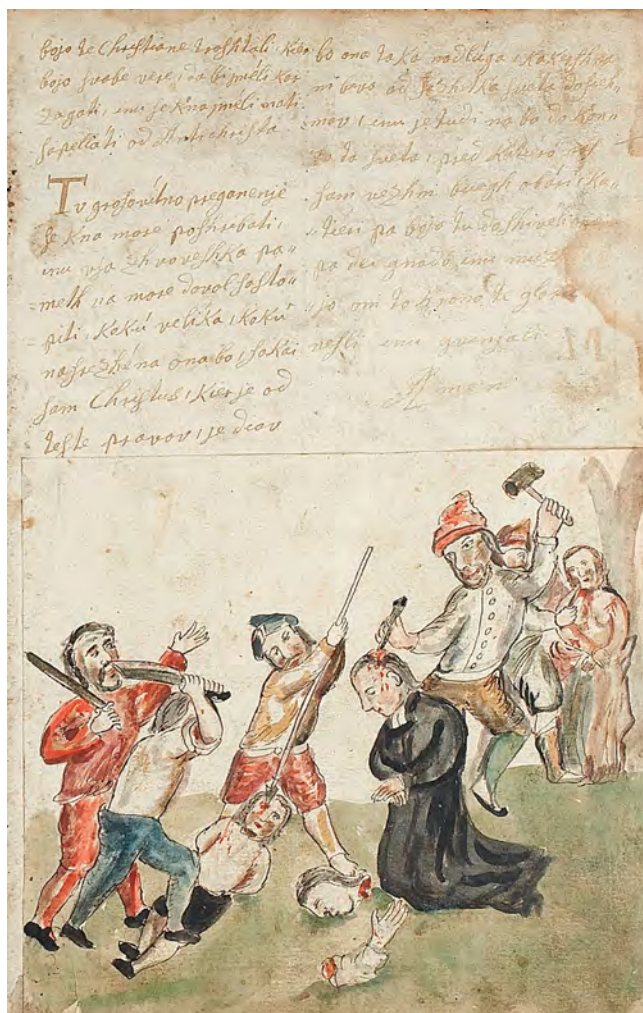 bojo te Christiane troshtali, kier
bojo svabe vere, da bi jmèli kai
zagati, inu je kna jmèli mati
sapellati od Antichrista.
Tu grosovitno preganenje
se kna more poshrebati,
inu vsa zhvoveshka pa=
=meth na more dovol sasto=
=piti, Kokú velika, Kokú
nasrezhna ona bo, sokai
sam Christus, Kier je od
teste pravov, je diav
bo ona taka nadluga, Kakershna
ni bova od sazhetka sveta dosieh=
=mav, inu je tudi na bo do Kon=
=za ta sveta, pred Katero
sam vezhni buegh obari, Ka=
=tieri pa bojo tu dashiveli
pa dei gnado, inu
=jo oni to Krono te
nesli inu
Amen